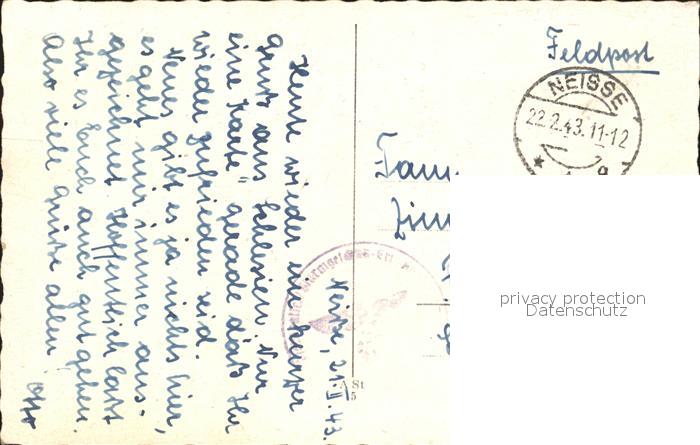 Feldpost
NEISSE
22.2.43.11-12
Neisse, 21.II.43.
Heute wieder ein kurzer
Gruß aus Schlesien. Nur
eine Karte, gerade daß Ihr
wieder zufrieden seid.
Neues gibt es ja nichts hier,
es geht mir immer aus-
gezeichnet. Hoffentlich laßt
Ihr es Euch auch gut gehen.
Also viele Grüße allen!
Otto
A St
5
privacy protection
Datenschutz